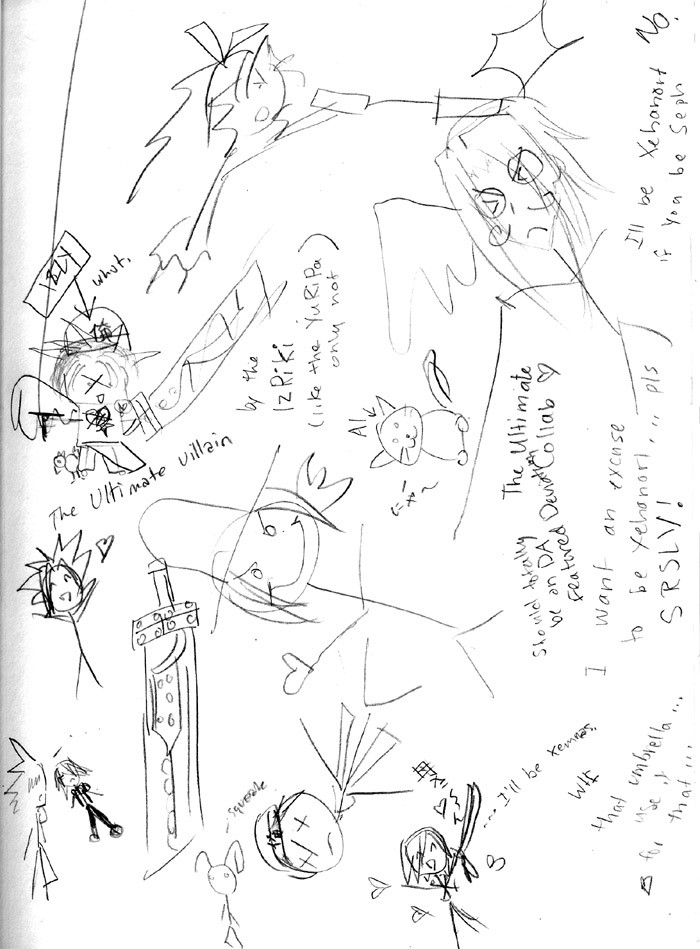 No!
I'll be Xehanort
if you be Seph
whut.
by the
IZRiKi
(like the YURiPa
only not)
AL
The Ultimate Villain
Should totally
be on DA
featured
The Ultimate
Collab ♡
I want an excuse
to be Xehanort... pls
SRSLY!
... I'll be xemnas.
wtf
that umbrella...
for use it
that...
- squeak